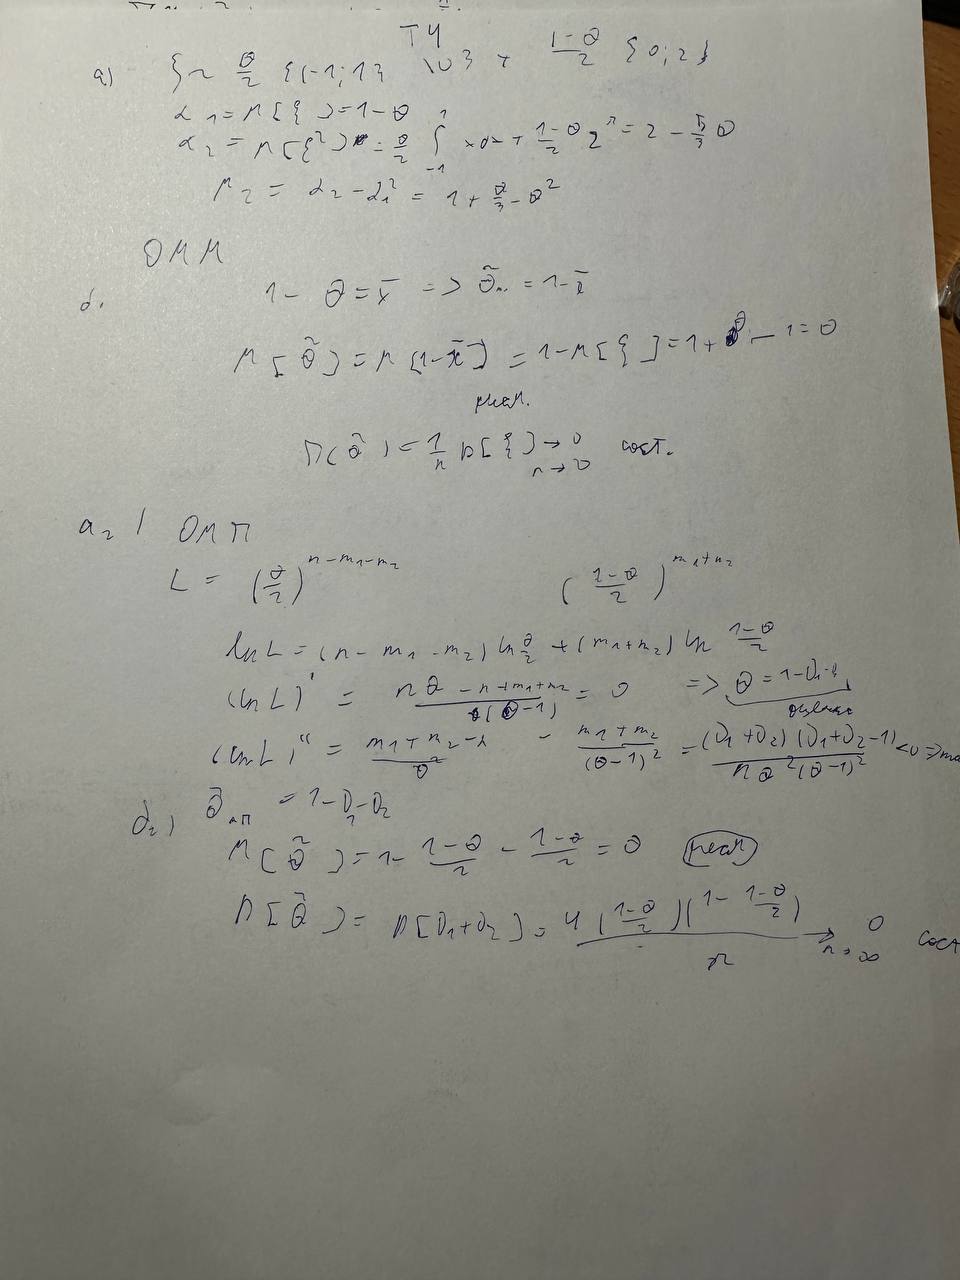 T4
a) ξ ~ θ/2 {(-1; 1) \ 0} + (1-θ)/2 {0; 2}
α₁ = M[ξ] = 1-θ
α₂ = M[ξ²] = θ/2 ∫₋₁¹ x dx + (1-θ)/2 2² = 2 - 5/3 θ
μ₂ = α₂ - α₁² = 1 + θ/3 - θ²
ОММ
б. 1 - θ = x̄ => θ̃ₘ. = 1 - x̄
M[θ̃] = M[1-x̄] = 1 - M[ξ] = 1 + θ - 1 = θ
D[θ̃] = 1/n D[ξ] → 0 сост.
n → ∞
a₂) ОМП
L = (θ/2)^(n-m₁-m₂) ((1-θ)/2)^(m₁+m₂)
ln L = (n - m₁ - m₂) ln θ/2 + (m₁+m₂) ln (1-θ)/2
(ln L)' = (nθ - n + m₁ + m₂)/(θ(θ-1)) = 0 => θ = 1-ν₁-ν₂
оценка
(ln L)'' = (m₁ + m₂ - n)/θ² - (m₁ + m₂)/(θ-1)² = (ν₁+ν₂)(ν₁+ν₂-1)/(nθ²(θ-1)²) <0 =>
б₂) θ̃мп = 1-ν₁-ν₂
M[θ̃] = 1 - (1-θ)/2 - (1-θ)/2 = θ
D[θ̃] = D[ν₁+ν₂] = 4((1-θ)/2)(1 - (1-θ)/2)/n → 0 сост
n → ∞